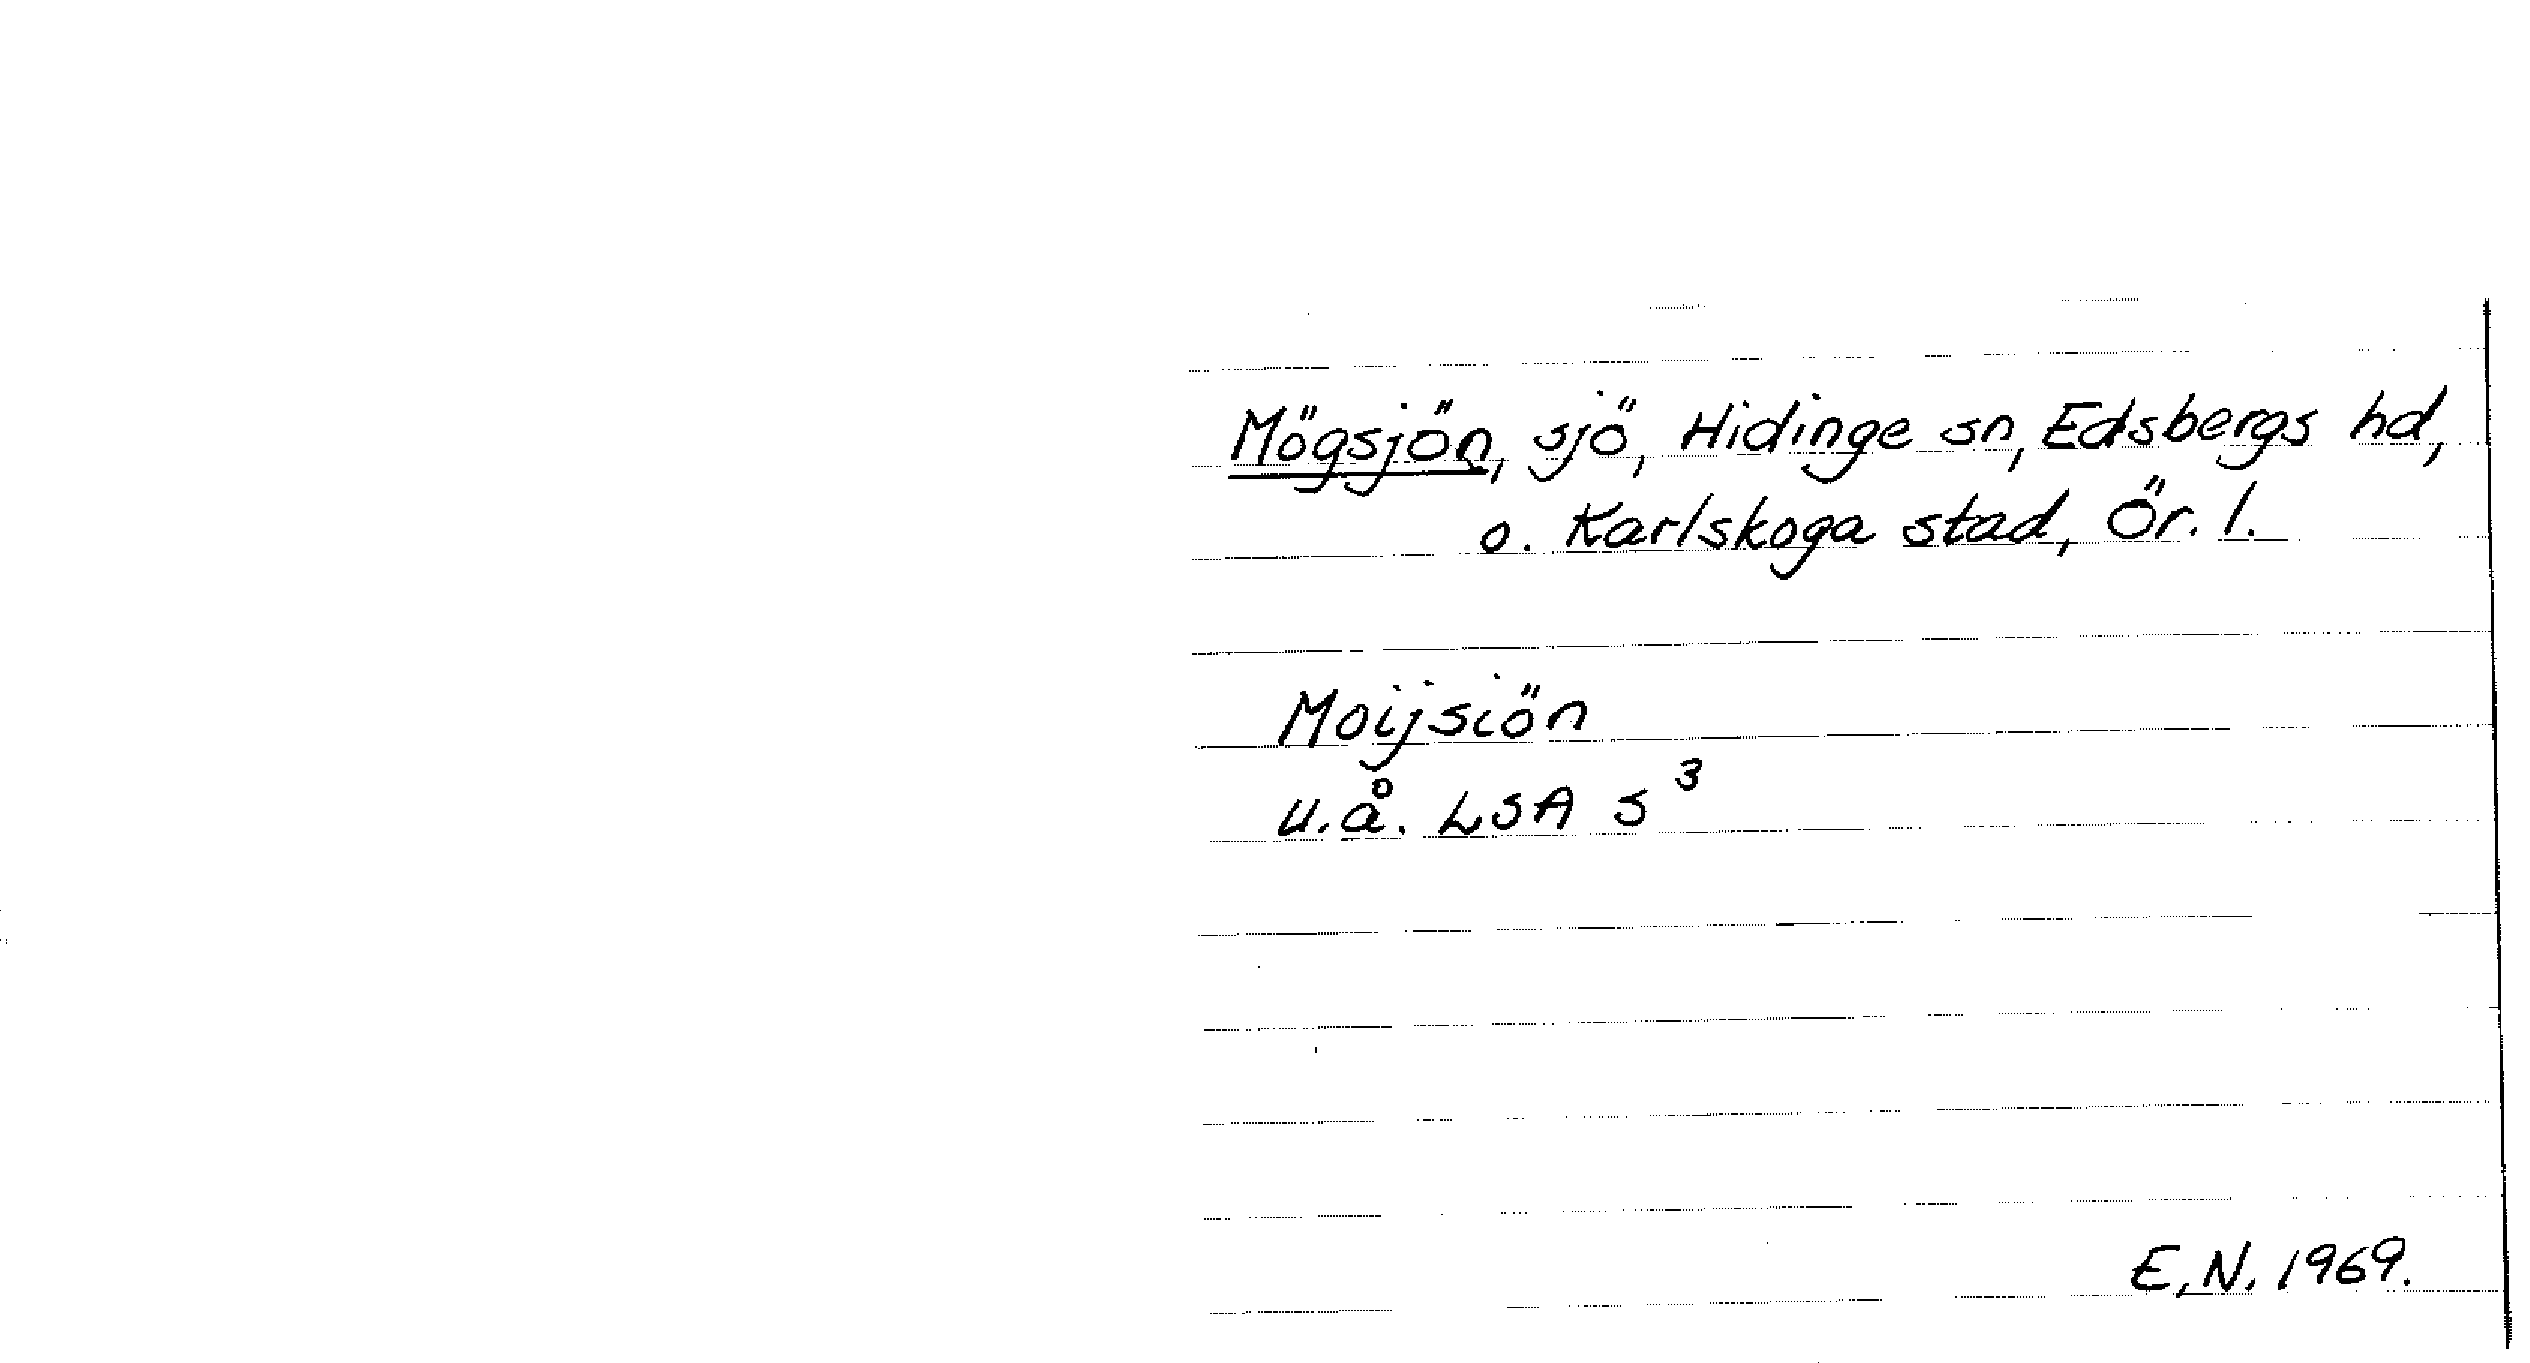 Mögsjön, sjö, Hidinge sn, Edsbergs hd,
o. Karlskoga stad, Ör. l.
Moijsiön
u.å. LSA S³
E.N. 1969.